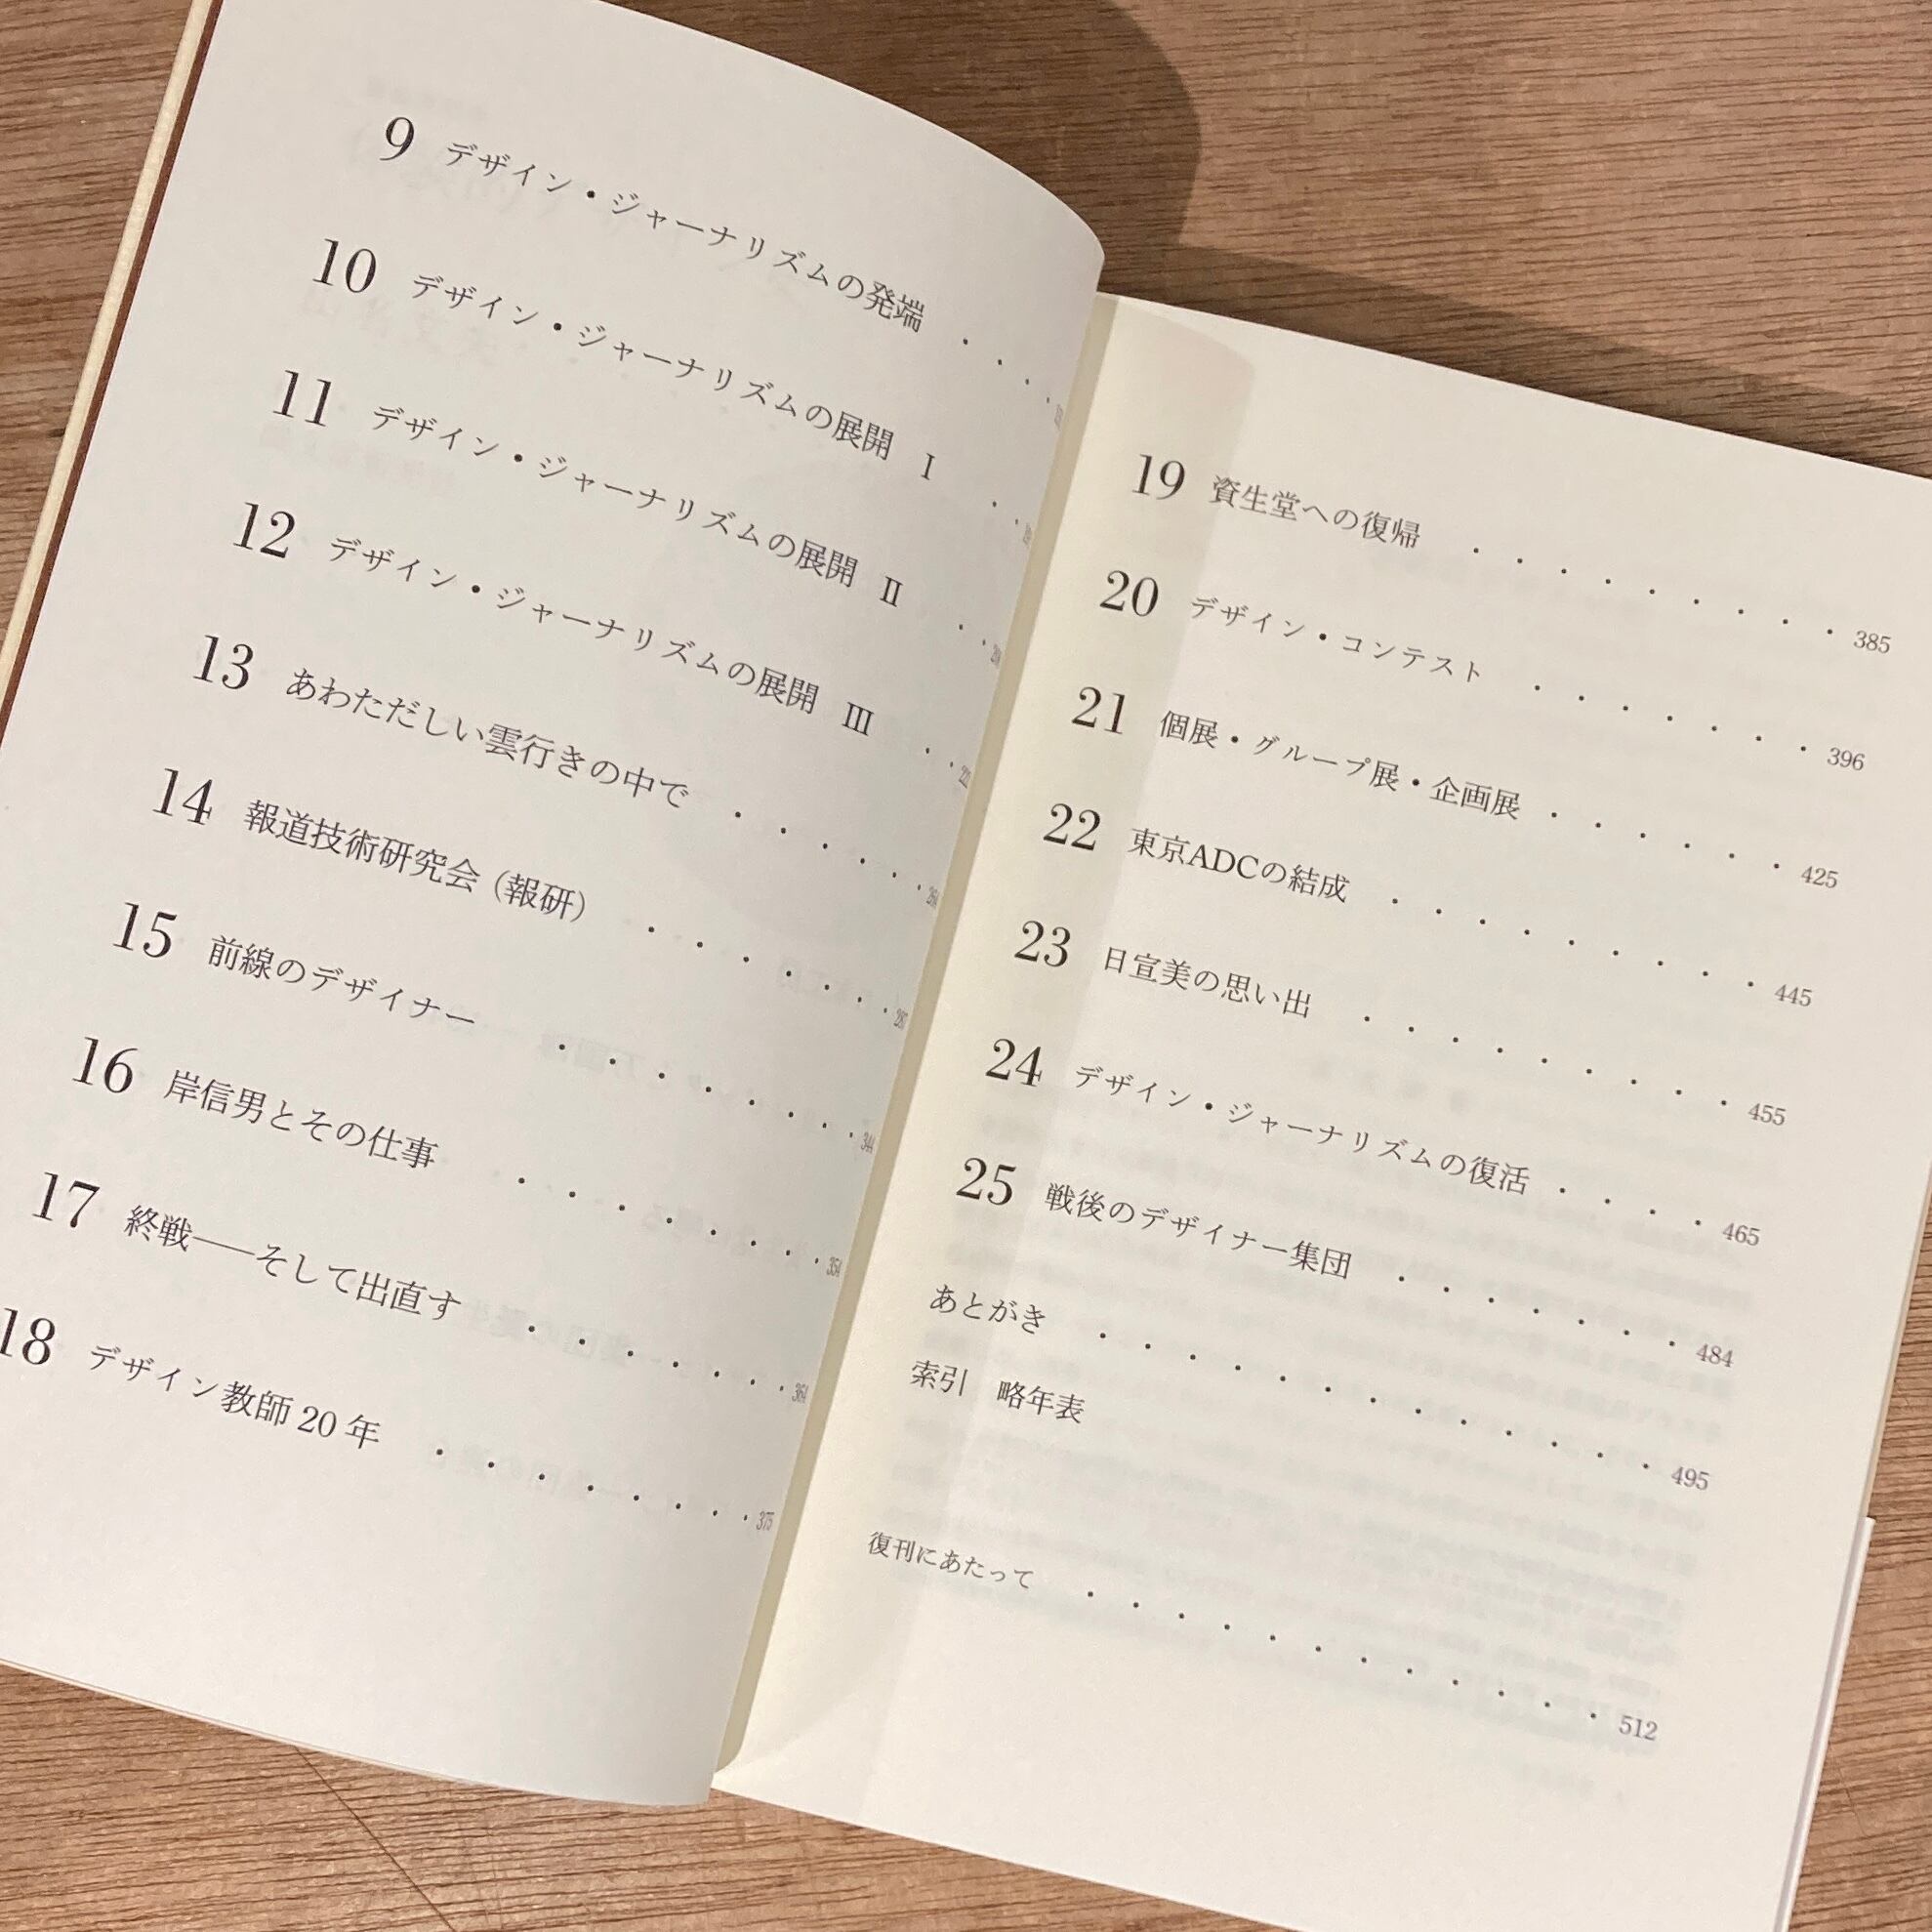 9 デザイン・ジャーナリズムの発端 ・・・・
10 デザイン・ジャーナリズムの展開 Ⅰ ・・・
11 デザイン・ジャーナリズムの展開 Ⅱ ・・
12 デザイン・ジャーナリズムの展開 Ⅲ ・・
13 あわただしい雲行きの中で ・・・・・
14 報道技術研究会（報研） ・・・・・・
15 前線のデザイナー ・・・・・・・ 344
16 岸信男とその仕事 ・・・・・・・
17 終戦──そして出直す ・・・・・・
18 デザイン教師20年 ・・・・・・・ 375
19 資生堂への復帰 ・・・・・・・・・ 385
20 デザイン・コンテスト ・・・・・・・ 396
21 個展・グループ展・企画展 ・・・・・・ 425
22 東京ADCの結成 ・・・・・・・・・ 445
23 日宣美の思い出 ・・・・・・・・・ 455
24 デザイン・ジャーナリズムの復活 ・・・・ 465
25 戦後のデザイナー集団 ・・・・・・・ 484
あとがき ・・・・・・・・・・・・・ 495
索引　略年表
復刊にあたって ・・・・・・・・・・・・ 512